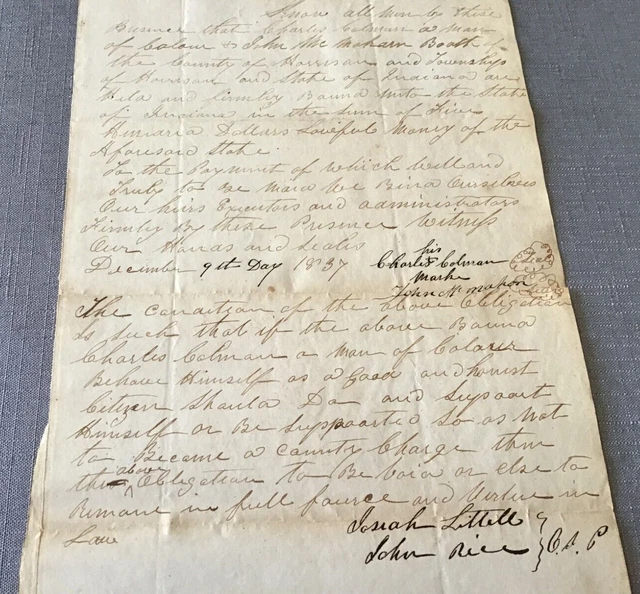 Know all Men by these
Presence that Charles Colman a Man
of Colour & John Mc mahorn Booth of
the County of Harrison and Township
of Harrison and State of Indiana are
Held and firmley Bound unto the State
of Indiana in the sum of Five
Hundred Dollars Lawful Money of the
Aforesaid State.
To the Payment of which well and
Truly to be maid We Bind Ourselves
Our heirs Executors and administrators
Firmley By these Presence Witness
Our Hands and Seales
December 9th Day 1837
his
Charles Colman Seal
Marke
John Mc mahon Seal
The Condition of the above Obligation
Is such that if the above Bound
Charles Colman a man of Colour
Behave Himself as a Good and honist
Citizen Should Do and Support
Himself or Be Suppoarted so as Not
to Became a County Charge then
the above Obligation to Be Void or else to
Remane in full fource and Virtue in
Law
Josiah Littell
John Rice } O. S. P